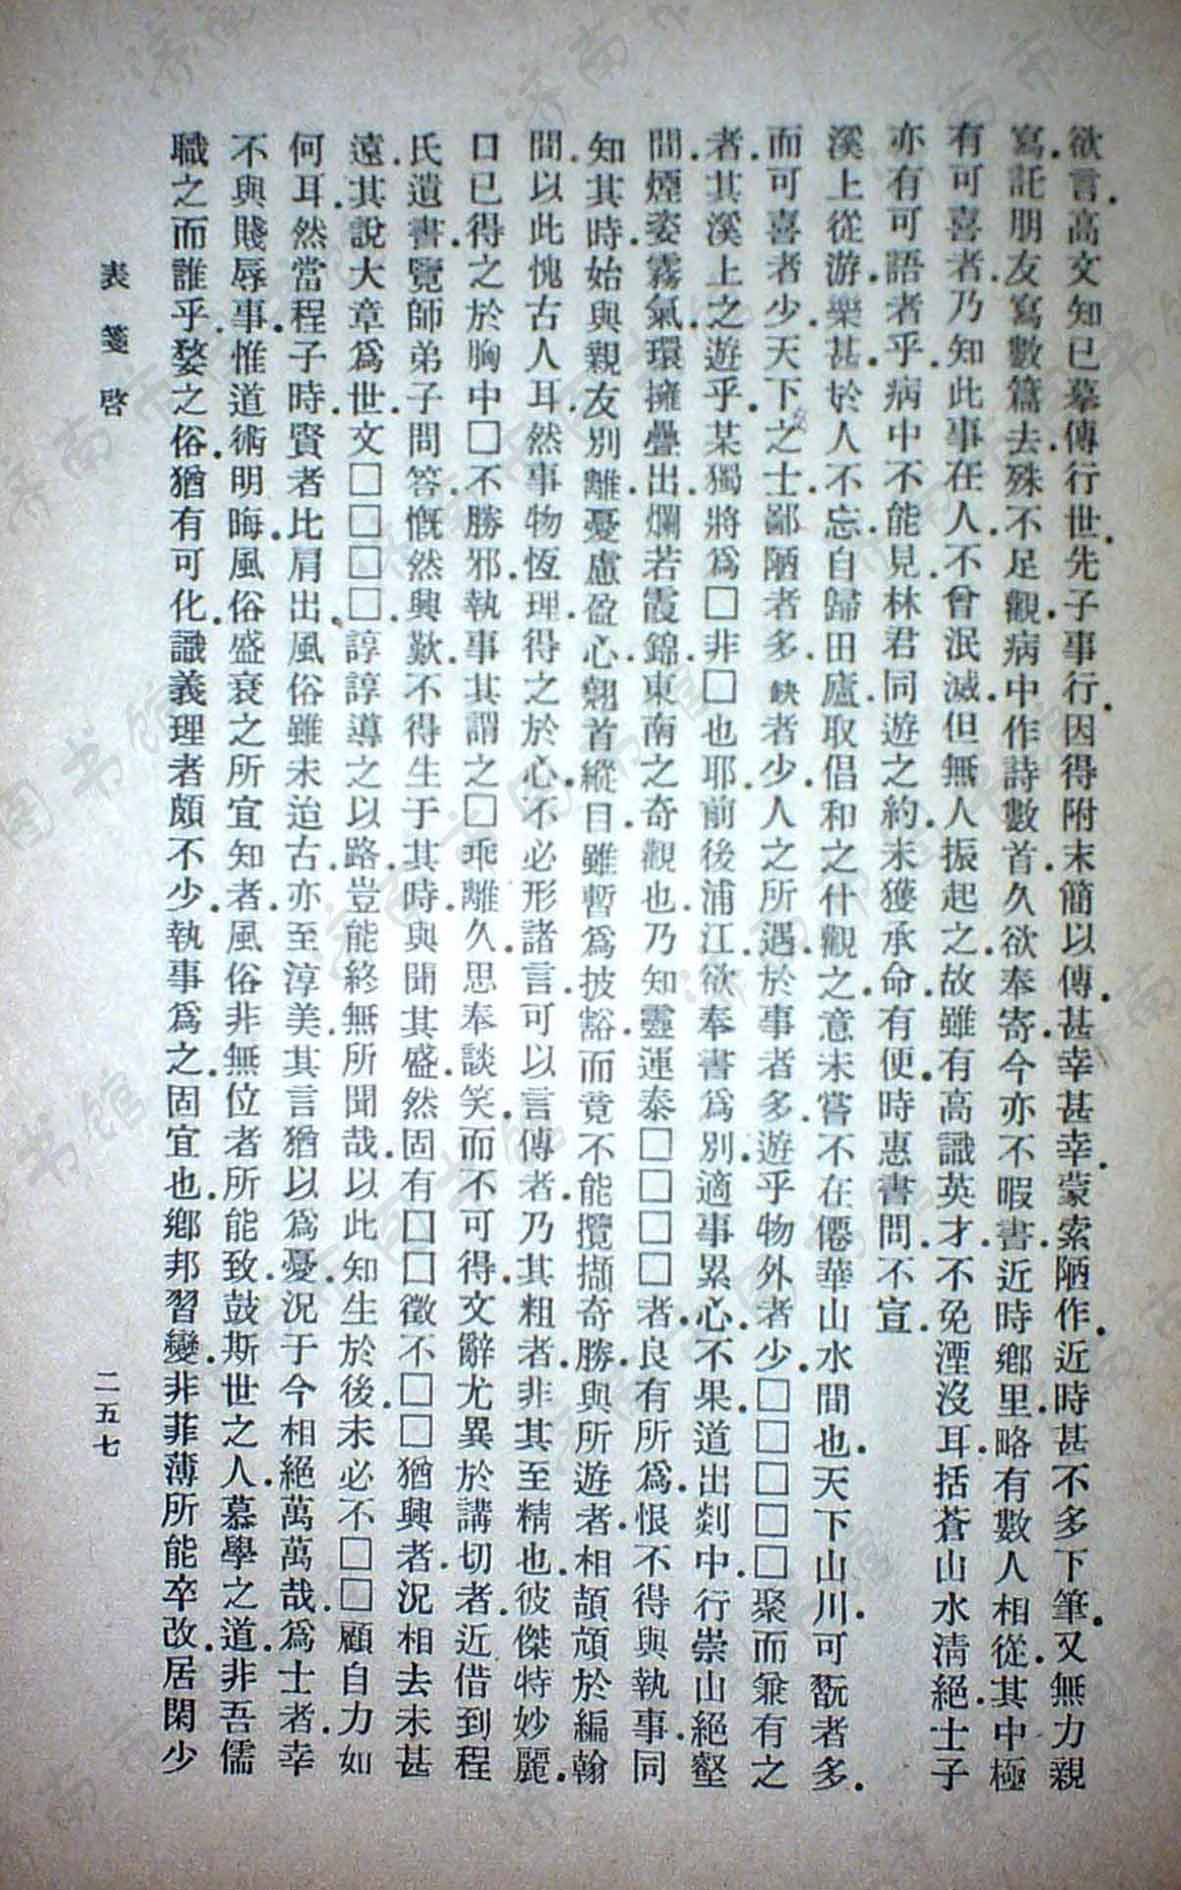 欲言高文知已墓傳行世先子事行因得附末簡以傳甚幸甚幸蒙索陋作近時甚不多下筆又無力親
寫託朋友寫數篇去殊不足觀病中作詩數首久欲奉寄今亦不暇書近時鄉里略有數人相從其中極
有可喜者乃知此事在人不曾泯滅但無人振起之故雖有高識英才不免湮沒耳括蒼山水淸絕士子
亦有可語者乎病中不能見林君同遊之約未獲承命有便時惠書問不宣
溪上從游樂甚於人不忘自歸田廬取倡和之什觀之意未嘗不在僊華山水間也天下山川可翫者多
而可喜者少天下之士鄙陋者多缺者少人之所遇於事者多遊乎物外者少□□□□□聚而兼有之
者其溪上之遊乎某獨將爲□非□也耶前後浦江欲奉書爲別適事累心不果道出剡中行崇山絕壑
間煙姿霧氣環擁疊出爛若霞錦東南之奇觀也乃知靈運泰□□□□者良有所爲恨不得與執事同
知其時始與親友別離憂慮盈心翹首縱目雖暫爲披豁而竟不能攬擷奇勝與所遊者相頡頏於編翰
間以此愧古人耳然事物恆理得之於心不必形諸言可以言傳者乃其粗者非其至精也彼傑特妙麗
口已得之於胸中□不勝邪執事其謂之□乖離久思奉談笑而不可得文辭尤異於講切者近借到程
氏遺書覽師弟子問答慨然興歎不得生于其時與聞其盛然固有□□徵不□□猶興者況相去未甚
遠其說大章爲世文□□□□諄諄導之以路豈能終無所聞哉以此知生於後未必不□□顧自力如
何耳然當程子時賢者比肩出風俗雖未迨古亦至淳美其言猶以爲憂況于今相絕萬萬哉爲士者幸
不與賤辱事惟道術明晦風俗盛衰之所宜知者風俗非無位者所能致鼓斯世之人慕學之道非吾儒
職之而誰乎婺之俗猶有可化識義理者頗不少執事爲之固宜也鄉邦習變非菲薄所能卒改居閑少
表箋啓
二五七